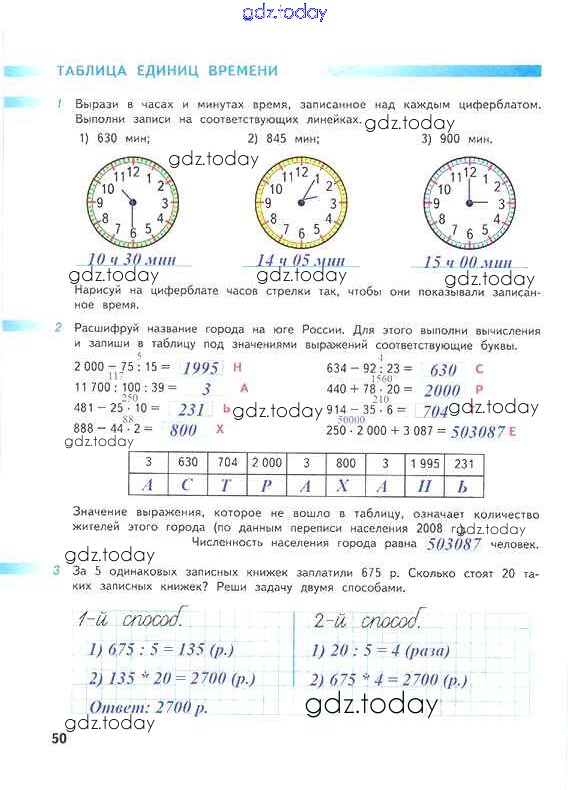 gdz.today
ТАБЛИЦА ЕДИНИЦ ВРЕМЕНИ
1 Вырази в часах и минутах время, записанное над каждым циферблатом.
Выполни записи на соответствующих линейках.
gdz.today
1) 630 мин; 2) 845 мин; 3) 900 мин.
gdz.today
12 1 2 3 4 5 6 7 8 9 10 11
12 1 2 3 4 5 6 7 8 9 10 11
12 1 2 3 4 5 6 7 8 9 10 11
10 ч 30 мин 14 ч 05 мин 15 ч 00 мин
gdz.today gdz.today gdz.today
Нарисуй на циферблате часов стрелки так, чтобы они показывали записан-
ное время.
2 Расшифруй название города на юге России. Для этого выполни вычисления
и запиши в таблицу под значениями выражений соответствующие буквы.
5 4
2 000 − 75 : 15 = 1995 Н 634 − 92 : 23 = 630 С
117 1560
11 700 : 100 : 39 = 3 А 440 + 78 · 20 = 2000 Р
250 210
481 − 25 · 10 = 231 Ь gdz.today 914 − 35 · 6 = 704 gdz.today
88 50000
888 − 44 · 2 = 800 Х 250 · 2 000 + 3 087 = 503087 Е
gdz.today
3 630 704 2 000 3 800 3 1 995 231
А С Т Р А Х А Н Ь
Значение выражения, которое не вошло в таблицу, означает количество
жителей этого города (по данным переписи населения 2008 г. gdz.today
Численность населения города равна 503087 человек.
gdz.today
3 За 5 одинаковых записных книжек заплатили 675 р. Сколько стоят 20 та-
ких записных книжек? Реши задачу двумя способами.
gdz.today
1-й способ. 2-й способ.
1) 675 : 5 = 135 (р.) 1) 20 : 5 = 4 (раза)
2) 135 * 20 = 2700 (р.) 2) 675 * 4 = 2700 (р.)
Ответ: 2700 р. gdz.today
gdz.today
50